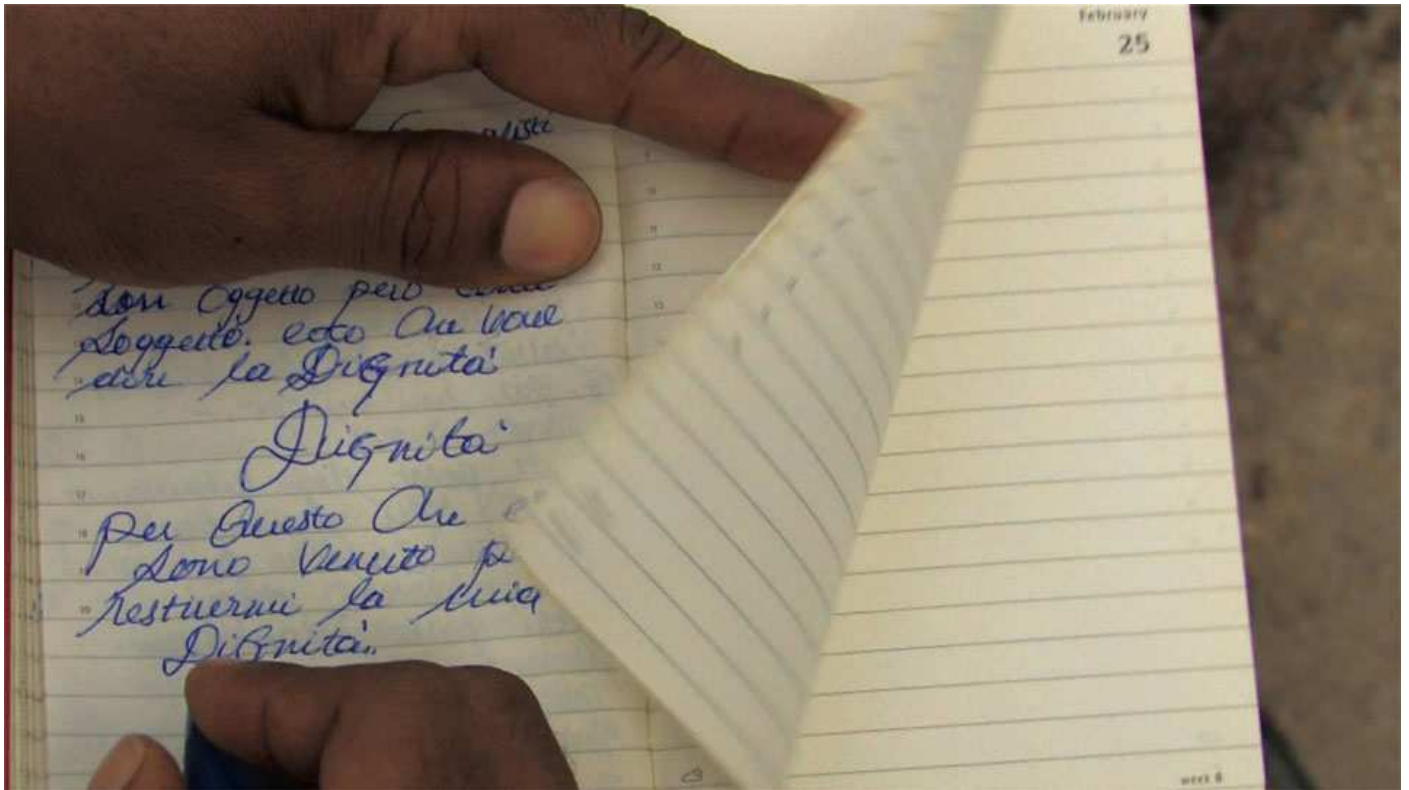 February
25
son Oggetto però
Soggetto. ecco Che vuole
dire la Dignità
Dignità
per Questo Che
sono venuto
restuermi la mia
Dignità.
week 8